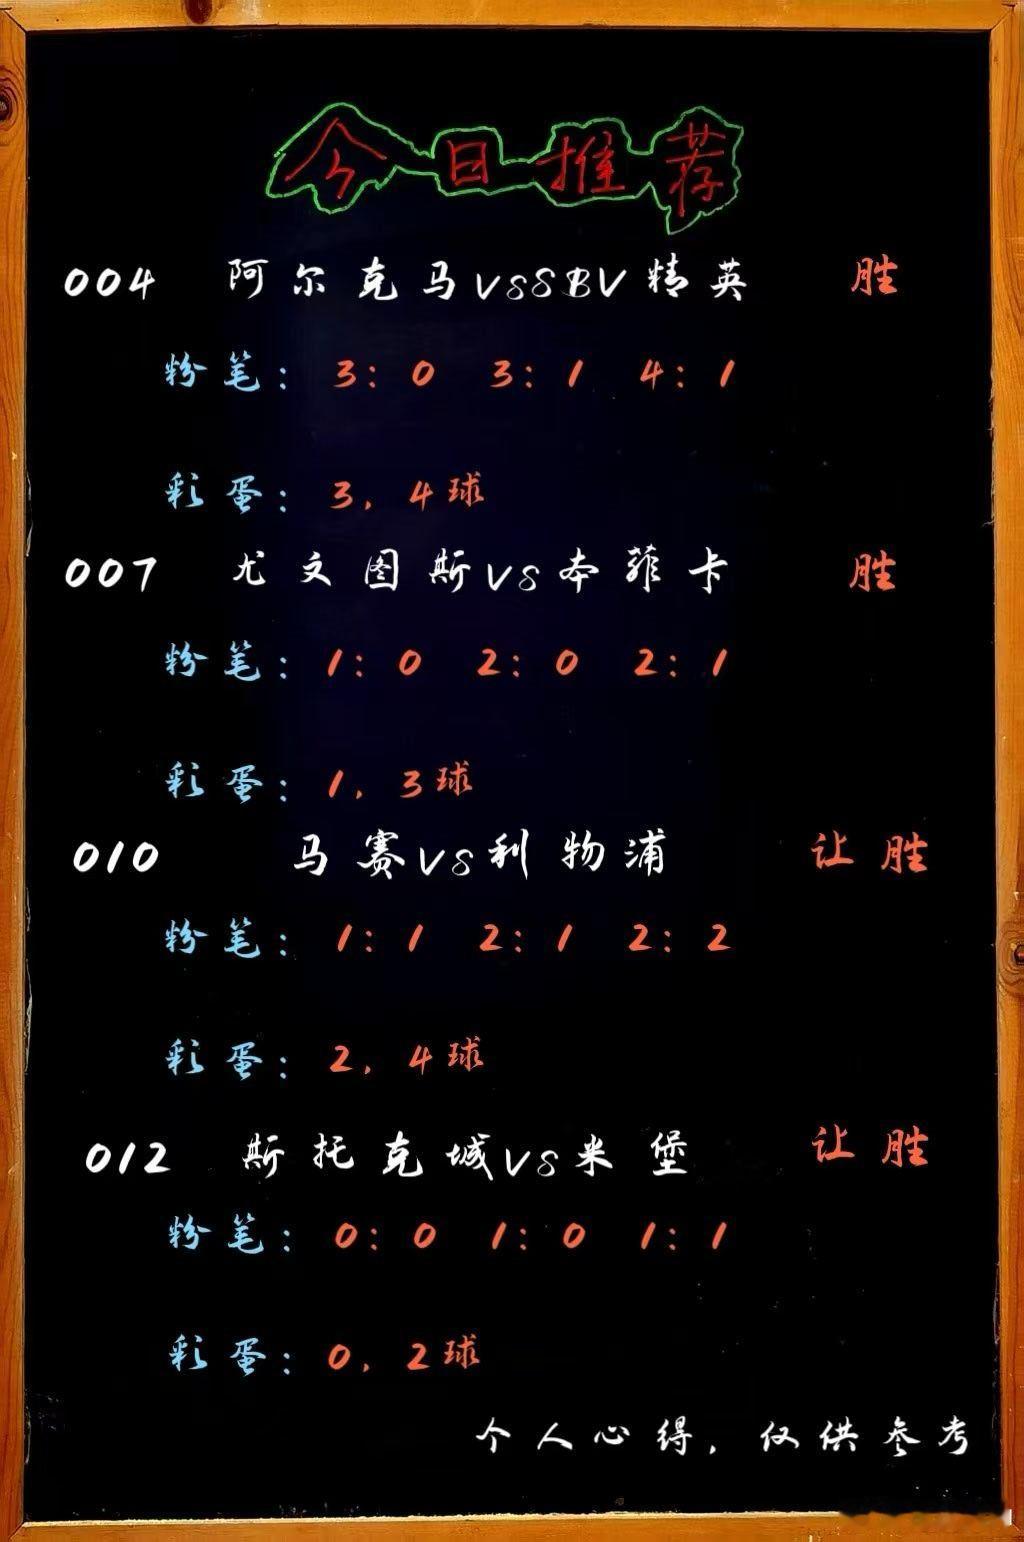 今日推荐
004 阿尔克马VSSBV精英 胜
粉笔: 3:0 3:1 4:1
彩蛋: 3, 4球
007 尤文图斯VS本菲卡 胜
粉笔: 1:0 2:0 2:1
彩蛋: 1, 3球
010 马赛VS利物浦 让胜
粉笔: 1:1 2:1 2:2
彩蛋: 2, 4球
012 斯托克城VS米堡 让胜
粉笔: 0:0 1:0 1:1
彩蛋: 0, 2球
个人心得, 仅供参考